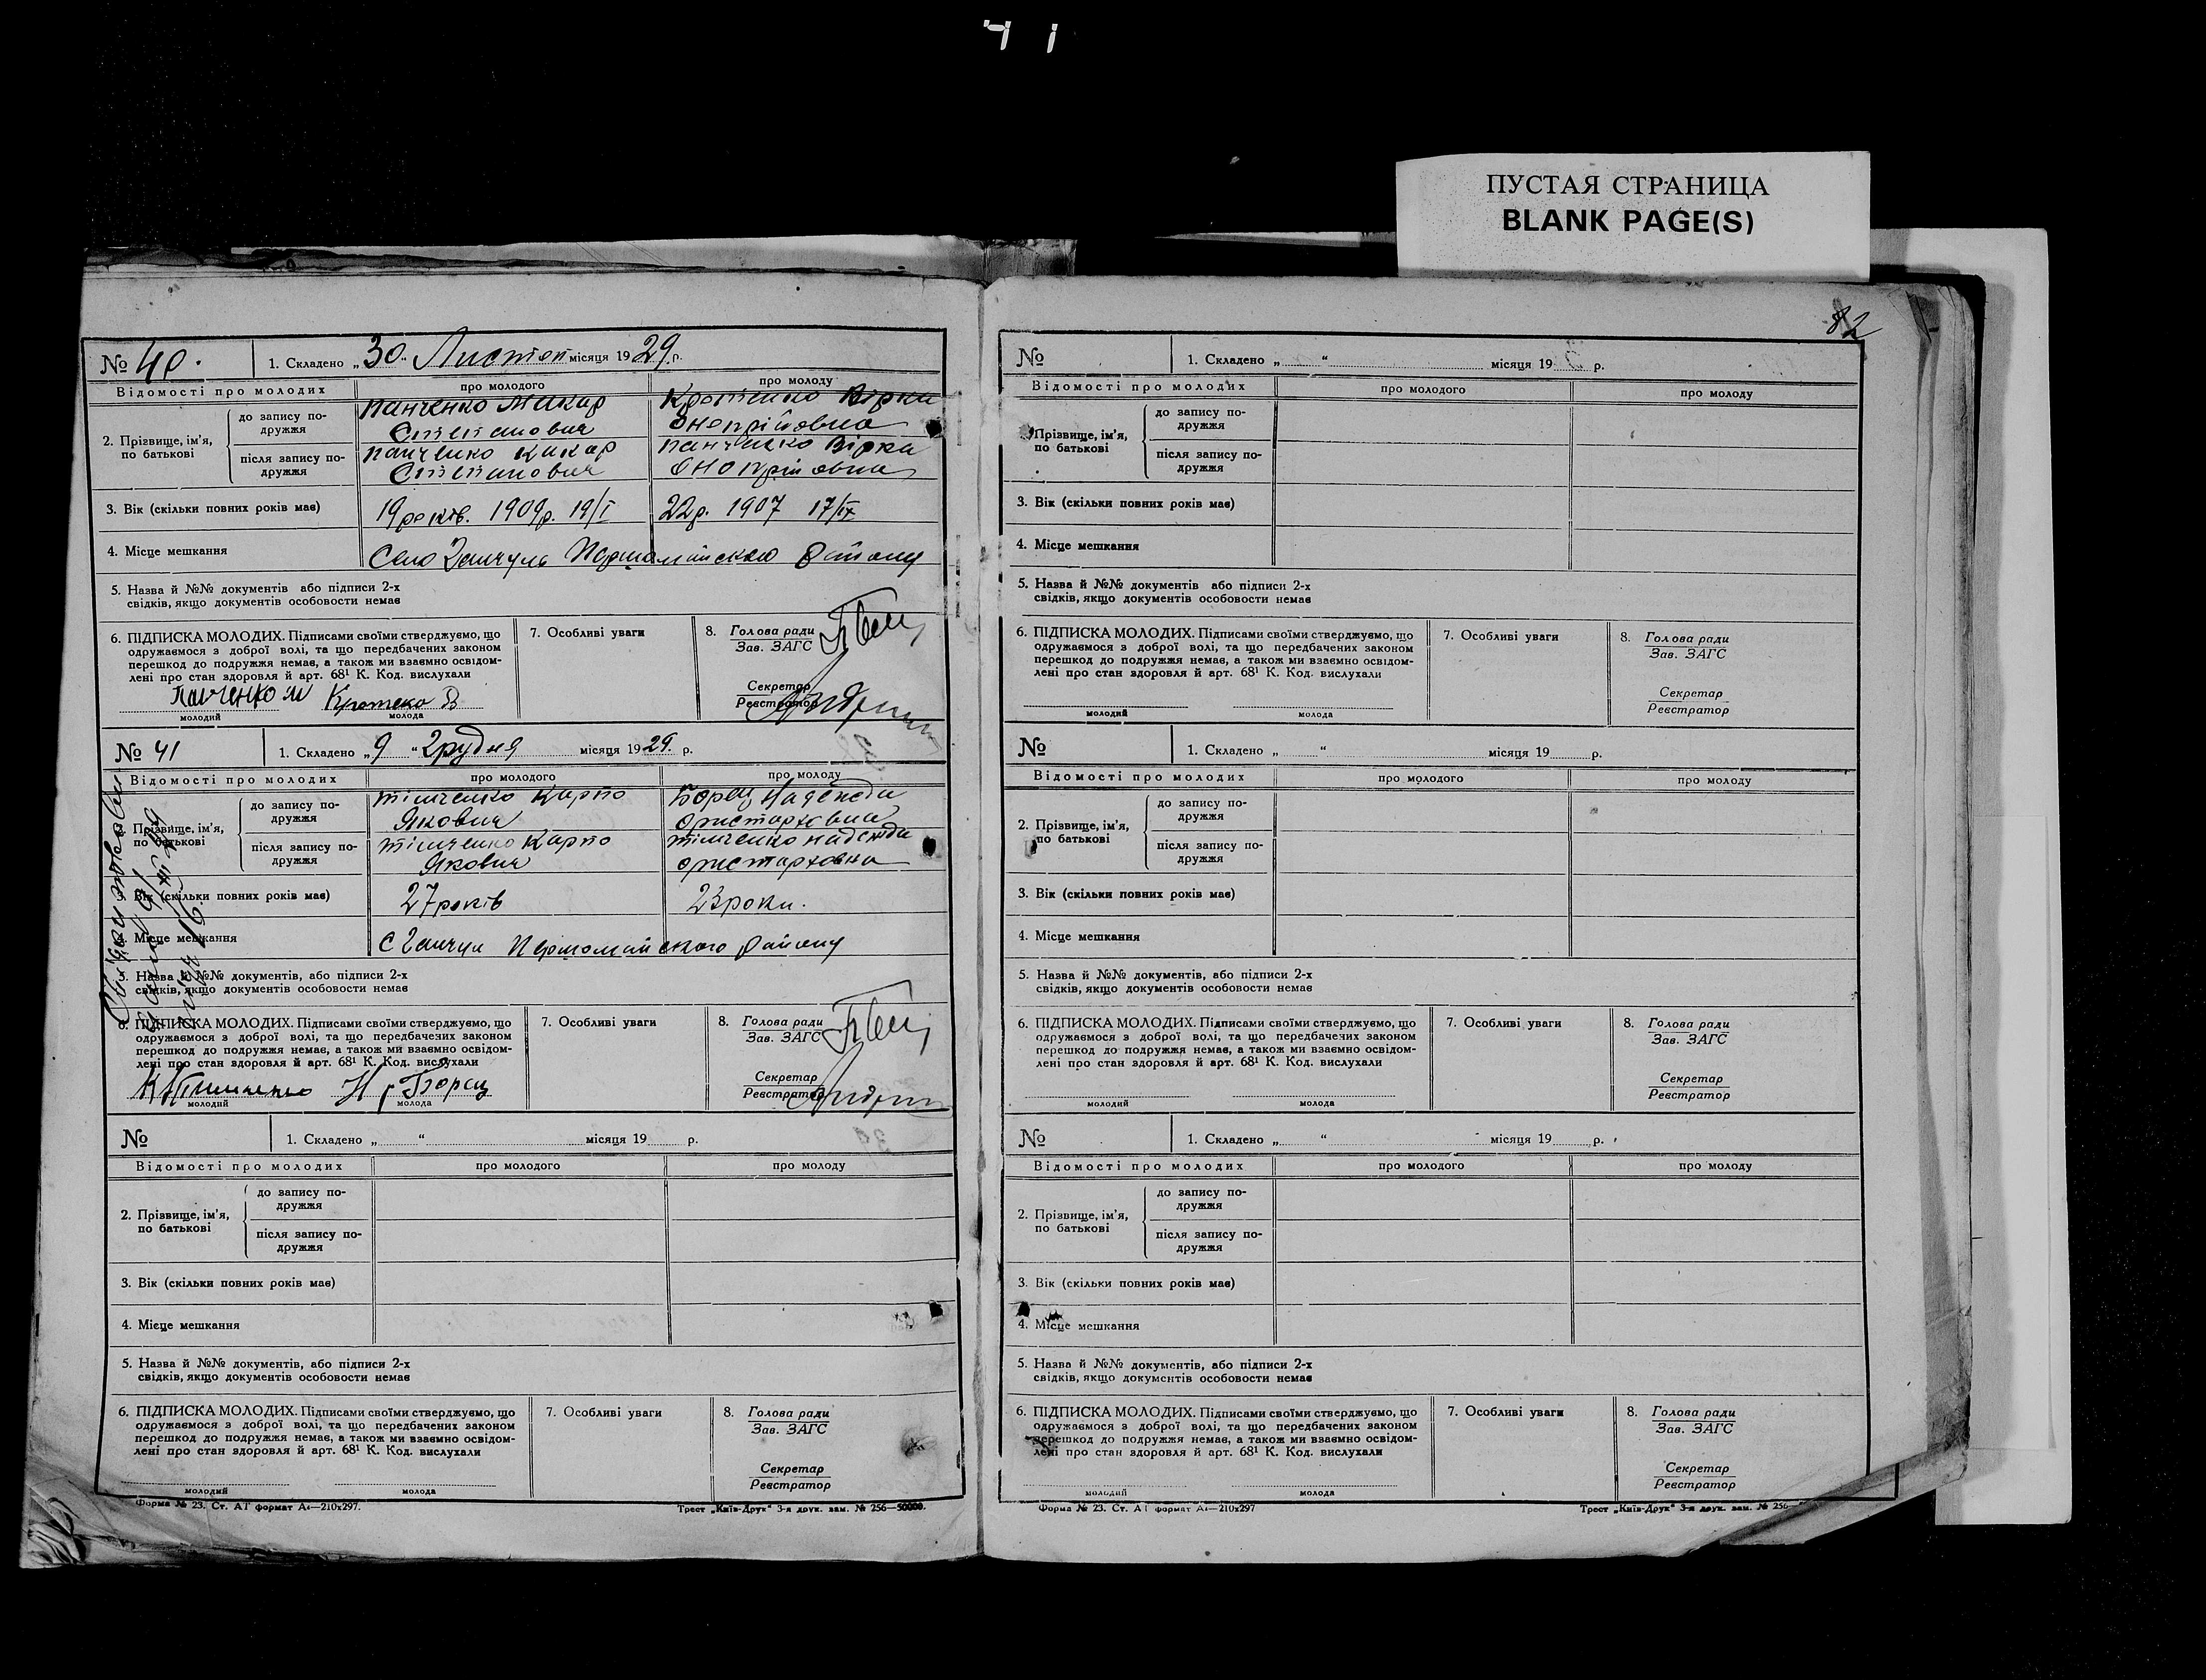 41
ПУСТАЯ СТРАНИЦА
BLANK PAGE(S)
№ 40. 1. Складено „30“ Листоп місяця 1929 р.
Відомості про молодих про молодого про молоду
2. Прізвище, ім’я, по батькові
до запису по-
дружжя
Панченко Макар
Степанович
Вірка
після запису по-
дружжя
Панченко
Степанович
Панченко Вірка
3. Вік (скільки повних років має) 19 років. 1909р. 19/I 22р. 1907 17/IX
4. Місце мешкання Село
5. Назва й №№ документів або підписи 2-х
свідків, якщо документів особовости немає
6. ПІДПИСКА МОЛОДИХ. Підписами своїми стверджуємо, що
одружаємося з доброї волі, та що передбачених законом
перешкод до подружжя немає, а також ми взаємно освідом-
лені про стан здоровля й арт. 68¹ К. Код. вислухали
Панченко М
молодий молода
7. Особливі уваги
8. Голова ради
Зав. ЗАГС
Секретар
Реєстратор
№ 41 1. Складено „9“ Грудня місяця 1929. р.
Відомості про молодих про молодого про молоду
Прізвище, ім’я,
по батькові
до запису по-
дружжя
Тімченко Карпо
Якович
Борец Надежда
Ористарховна
після запису по-
дружжя
Тімченко Карпо
Якович
Тімченко Надежда
Ористарховна
3. Вік (скільки повних років має) 27 років 23 роки.
4. Місце мешкання С
5. Назва й №№ документів, або підписи 2-х
свідків, якщо документів особовости немає
6. ПІДПИСКА МОЛОДИХ. Підписами своїми стверджуємо, що
одружаємося з доброї волі, та що передбачених законом
перешкод до подружжя немає, а також ми взаємно освідом-
лені про стан здоровля й арт. 68¹ К. Код. вислухали
Борец
молодий молода
7. Особливі уваги
8. Голова ради
Зав. ЗАГС
Секретар
Реєстратор
№ 1. Складено „ “ місяця 19 р.
Відомості про молодих про молодого про молоду
2. Прізвище, ім’я,
по батькові
до запису по-
дружжя
після запису по-
дружжя
3. Вік (скільки повних років має)
4. Місце мешкання
5. Назва й №№ документів, або підписи 2-х
свідків, якщо документів особовости немає
6. ПІДПИСКА МОЛОДИХ. Підписами своїми стверджуємо, що
одружаємося з доброї волі, та що передбачених законом
перешкод до подружжя немає, а також ми взаємно освідом-
лені про стан здоровля й арт. 68¹ К. Код. вислухали
молодий молода
7. Особливі уваги
8. Голова ради
Зав. ЗАГС
Секретар
Реєстратор
Форма № 23. Ст. АГ формат А₄—210x297. Трест „Київ-Друк“ 3-я друк. зам. № 256—50000.
82
№ 1. Складено „ “ місяця 19 р.
Відомості про молодих про молодого про молоду
Прізвище, ім’я,
по батькові
до запису по-
дружжя
після запису по-
дружжя
3. Вік (скільки повних років має)
4. Місце мешкання
5. Назва й №№ документів або підписи 2-х
свідків, якщо документів особовости немає
6. ПІДПИСКА МОЛОДИХ. Підписами своїми стверджуємо, що
одружаємося з доброї волі, та що передбачених законом
перешкод до подружжя немає, а також ми взаємно освідом-
лені про стан здоровля й арт. 68¹ К. Код. вислухали
молодий молода
7. Особливі уваги
8. Голова ради
Зав. ЗАГС
Секретар
Реєстратор
№ 1. Складено „ “ місяця 19 р.
Відомості про молодих про молодого про молоду
2. Прізвище, ім’я,
по батькові
до запису по-
дружжя
після запису по-
дружжя
3. Вік (скільки повних років має)
4. Місце мешкання
5. Назва й №№ документів, або підписи 2-х
свідків, якщо документів особовости немає
6. ПІДПИСКА МОЛОДИХ. Підписами своїми стверджуємо, що
одружаємося з доброї волі, та що передбачених законом
перешкод до подружжя немає, а також ми взаємно освідом-
лені про стан здоровля й арт. 68¹ К. Код. вислухали
молодий молода
7. Особливі уваги
8. Голова ради
Зав. ЗАГС
Секретар
Реєстратор
№ 1. Складено „ “ місяця 19 р.
Відомості про молодих про молодого про молоду
2. Прізвище, ім’я,
по батькові
до запису по-
дружжя
після запису по-
дружжя
3. Вік (скільки повних років має)
4. Місце мешкання
5. Назва й №№ документів, або підписи 2-х
свідків, якщо документів особовости немає
6. ПІДПИСКА МОЛОДИХ. Підписами своїми стверджуємо, що
одружаємося з доброї волі, та що передбачених законом
перешкод до подружжя немає, а також ми взаємно освідом-
лені про стан здоровля й арт. 68¹ К. Код. вислухали
молодий молода
7. Особливі уваги
8. Голова ради
Зав. ЗАГС
Секретар
Реєстратор
Форма № 23. Ст. АГ формат А₄—210x297 Трест „Київ-Друк“ 3-я друк. зам. № 256